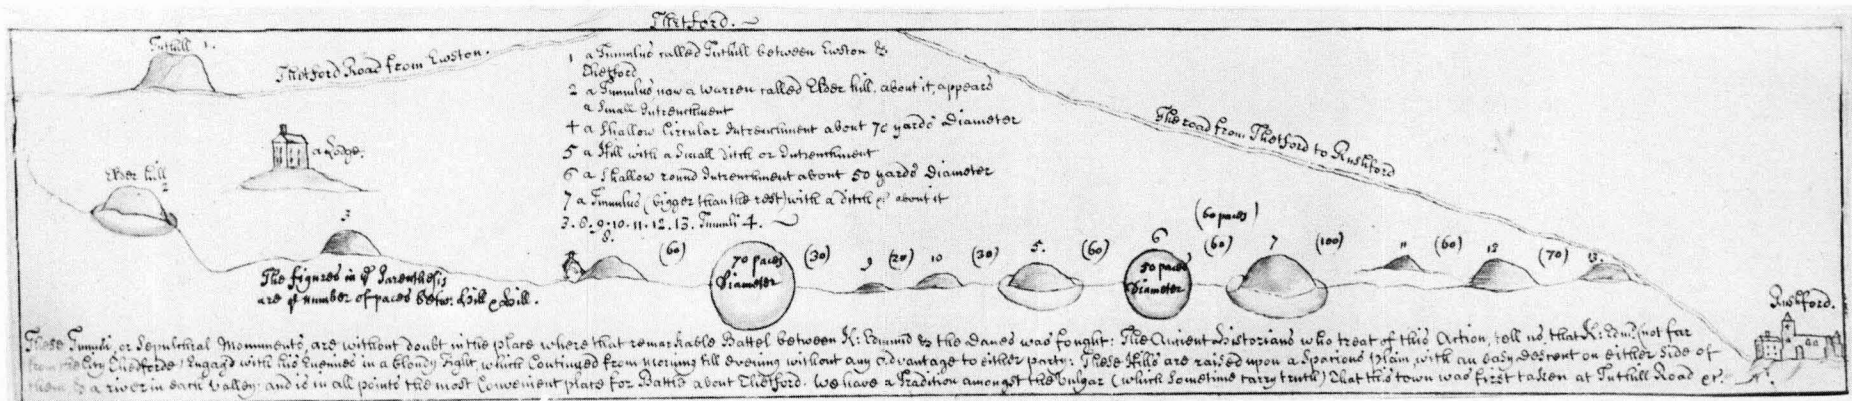 Thetford.
Tuthill 1.
Thetford Road from Ewston.
1 a Tumulus called Tuthill between Ewston &
Thetford
2 a Tumulus now a warren called Elder hill. about it, appears
a Small Intrenchment
4 a Shallow Circular Intrenchment about 70 yards Diameter
5 a Hill with a Small Ditch or Intrenchment
6 a Shallow round Intrenchment about 50 yards Diameter
7 a Tumulus (bigger than the rest) with a ditch &c about it
3. 8. 9. 10. 11. 12. 13. Tumuli 4.
The road from Thetford to Rushford
a Lodge.
Elder hill
2
3
8.
(60)
70 paces
Diameter
(30)
9
(20)
10
(30)
5.
(60)
6
50 paces
Diameter
(60 paces)
(60)
7
(100)
11
(60)
12
(70)
13.
Rushford.
The figures in ye Parenthesis
are ye number of paces betw: Hill & Hill.
These Tumuli, or Sepulchral Monuments, are without doubt in the place where that remarkable Battel between K: Edmund & the danes was fought: The Ancient Historians who treat of this Action, tell us, that K: Edm: (not far
from the City Thedforde) Engag'd with his Enemies in a bloudy Fight, which Continued from morning till evening without any advantage to either party: These Hills are raised upon a Spacious Plain, with an easy descent on either side of
them & a river in each valley: and is in all points the most Convenient place for Battle about Thetford. We have a Tradition amongst the Vulgar (which Sometime carry truth) That this town was first taken at Tuthill Road &c.